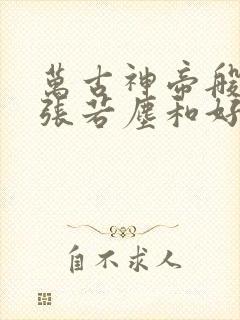 萬古神帝般
張若塵和好
自不求人